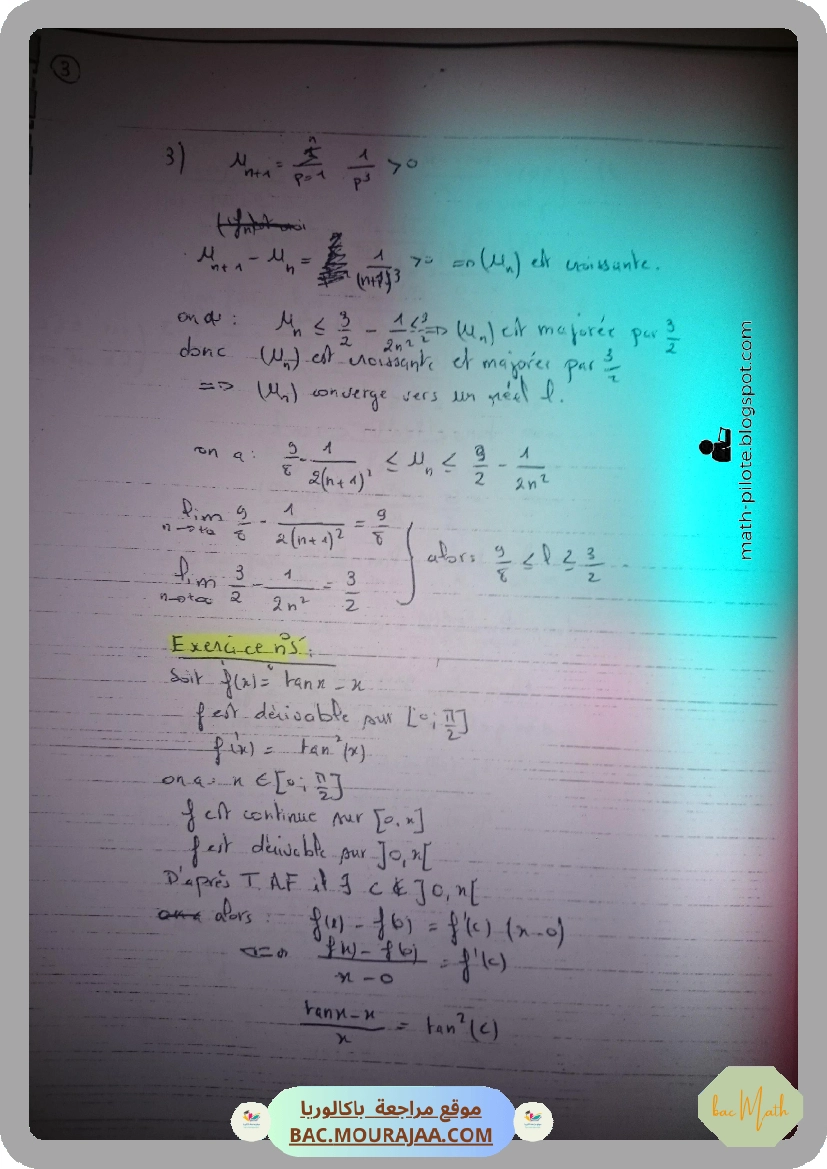 3
3) U_{n+1} = \sum_{p=1}^{n} \frac{1}{p^3} > 0
U_{n+1} - U_n = \frac{1}{(n+1)^3} > 0 => (U_n) est croissante.
on a : U_n ≤ \frac{3}{2} - \frac{1}{2n^2} ≤ \frac{3}{2} => (U_n) est majorée par \frac{3}{2}
donc (U_n) est croissante et majorée par \frac{3}{2}
=> (U_n) converge vers un réel l.
on a : \frac{9}{8} - \frac{1}{2(n+1)^2} ≤ U_n ≤ \frac{3}{2} - \frac{1}{2n^2}
lim_{n→+∞} \frac{9}{8} - \frac{1}{2(n+1)^2} = \frac{9}{8}
lim_{n→+∞} \frac{3}{2} - \frac{1}{2n^2} = \frac{3}{2}
alors \frac{9}{8} ≤ l ≥ \frac{3}{2}
Exercice n°5:
Soit f(x) = tan x - x
f est dérivable sur [0; \frac{π}{2}]
f'(x) = tan^2(x)
on a : x ∈ [0; \frac{π}{2}]
f est continue sur [0, x]
f est dérivable sur ]0, x[
D'après T.A.F il ∃ c ∈ ]0, x[
alors : f(x) - f(0) = f'(c) (x - 0)
\frac{f(x) - f(0)}{x - 0} = f'(c)
\frac{tan x - x}{x} = tan^2(c)
math-pilote.blogspot.com
موقع مراجعة باكالوريا
BAC.MOURAJAA.COM
bac Math